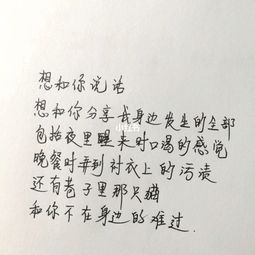 想和你说话
想和你分享我身边发生的全部
包括夜里醒来时口渴的感觉
晚餐时弄到衬衣上的污渍
还有巷子里那只猫
和你不在身边的难过.
小红书